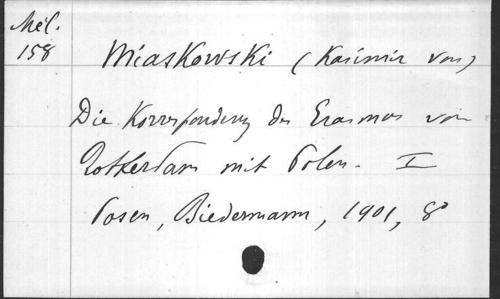 Mél.
158
Miaskowski (Kasimir von)
Die Korrespondenz des Erasmus von
Rotterdam mit Polen. I
Posen, Biedermann, 1901, 8°